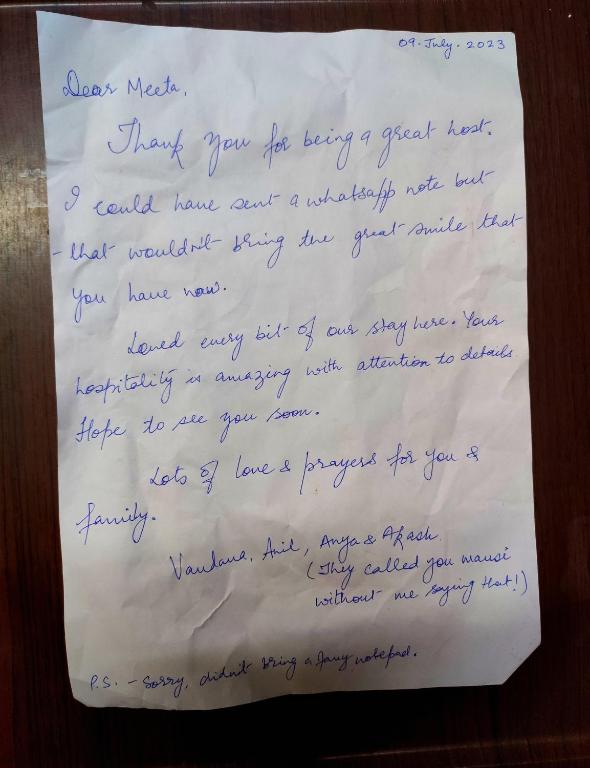 09. July. 2023
Dear Meeta,
Thank you for being a great host.
I could have sent a whatsapp note but
that wouldn't bring the great smile that
you have now.
Loved every bit of our stay here. Your
hospitality is amazing with attention to details.
Hope to see you soon.
Lots of love & prayers for you &
family.
Vandana, Anil, Anya & Akash.
(They called you mausi
without me saying that!)
P.S. - Sorry, didn't bring a fancy notepad.